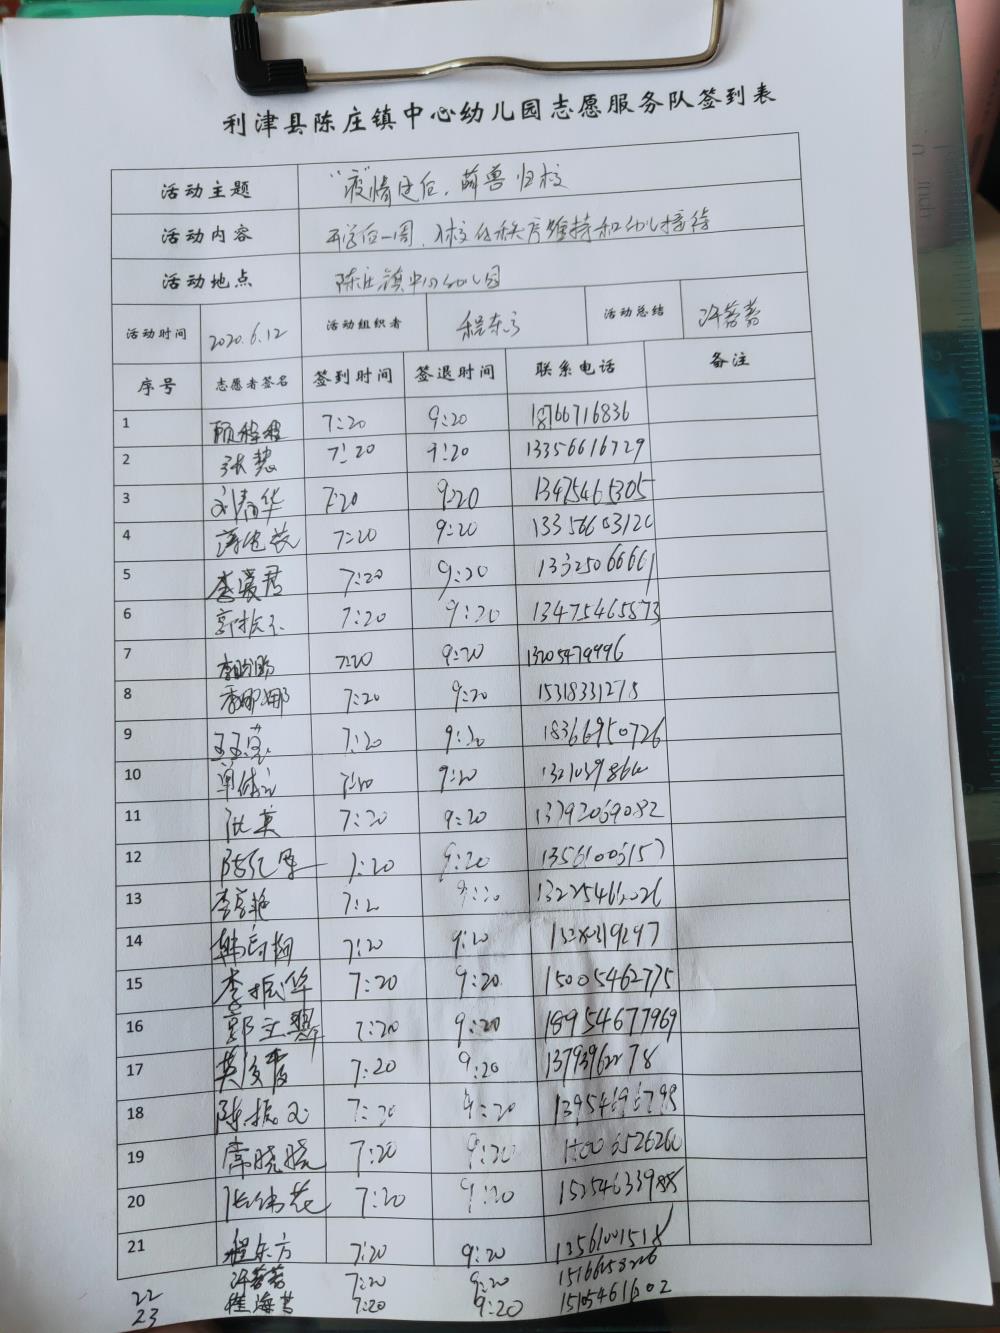 利津县陈庄镇中心幼儿园志愿服务队签到表
活动主题 "疫"情过后,萌兽归校
活动内容 开学后一周,入校的秩序维持和幼儿接待
活动地点 陈庄镇中心幼儿园
活动时间 2020.6.12 活动组织者 程东方 活动总结 许蓉蓉
序号 志愿者签名 签到时间 签退时间 联系电话 备注
1 7:20 9:20 18766716836
2 张慧 7:20 9:20 13356616729
3 刘清华 7:20 9:20 13475465305
4 7:20 9:20 13356603120
5 李爱君 7:20 9:20 13325066661
6 7:20 9:20 13475465873
7 7:20 9:20 13205479996
8 李娜娜 7:20 9:20 15318331278
9 7:20 9:20 18366950726
10 7:20 9:20
11 张英 7:20 9:20 13792069082
12 7:20 9:20 13561006157
13 7:20 9:20
14 7:20 9:20
15 李振华 7:20 9:20 15005462775
16 7:20 9:20 18954677969
17 7:20 9:20
18 陈振文 7:20 9:20 13954696798
19 常晓晓 7:20 9:20
20 张伟花 7:20 9:20 15254633988
21 程东方 7:20 9:20 13561001518
22 许蓉蓉 7:20 9:20
23 7:20 9:20 15105461602